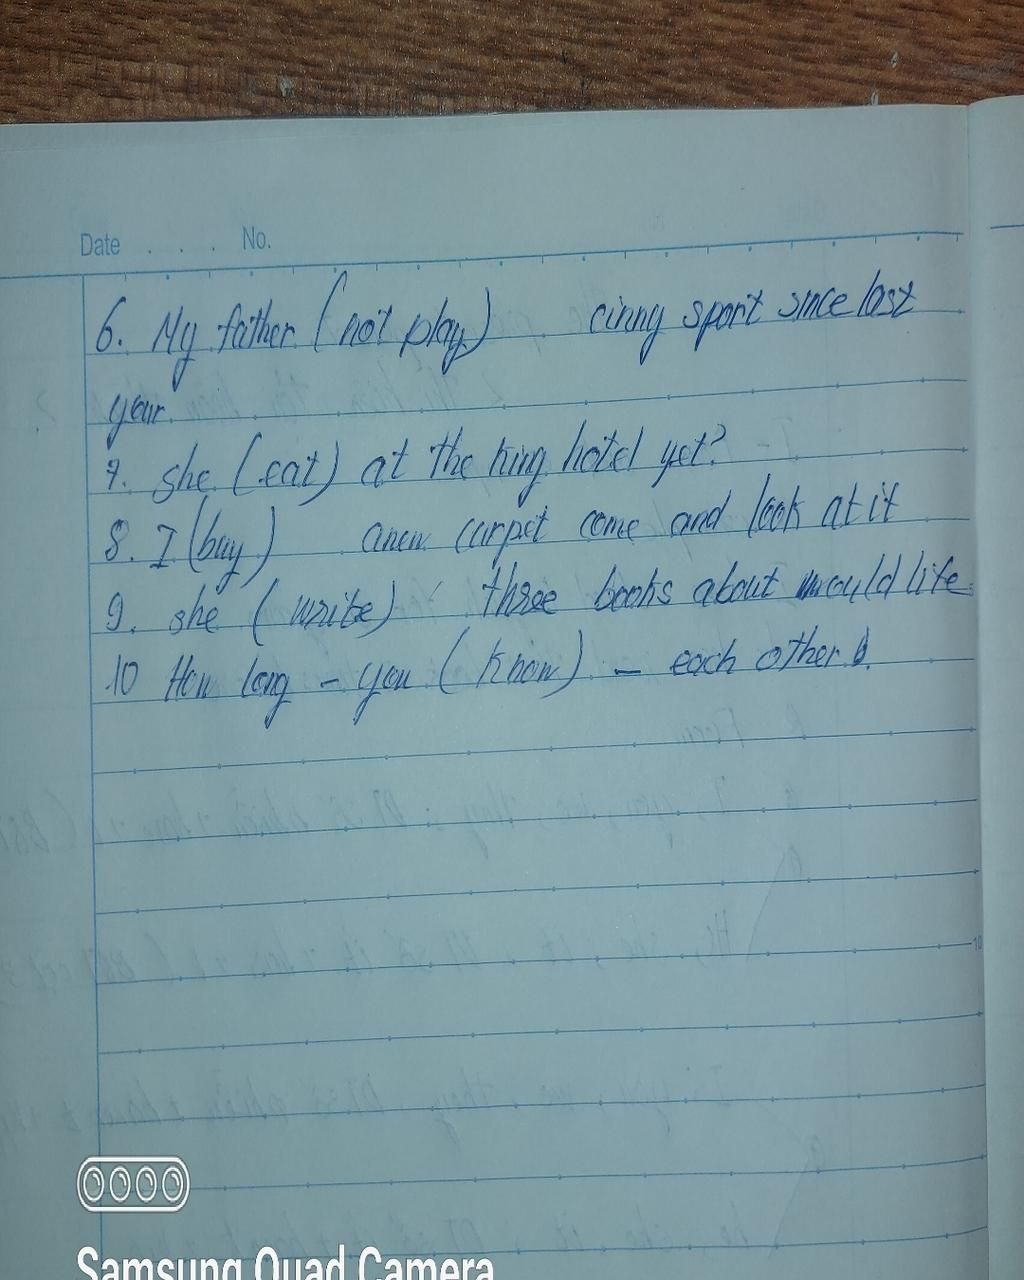 Date . . . . No.
6. My father (not play) cinny sport since last
year.
7. she (eat) at the king hotel yet?
8. I (buy) anew carpet come and look at it
9. she (write) three books about would life
10 How long - you (know) - each other
10
Samsung Quad Camera